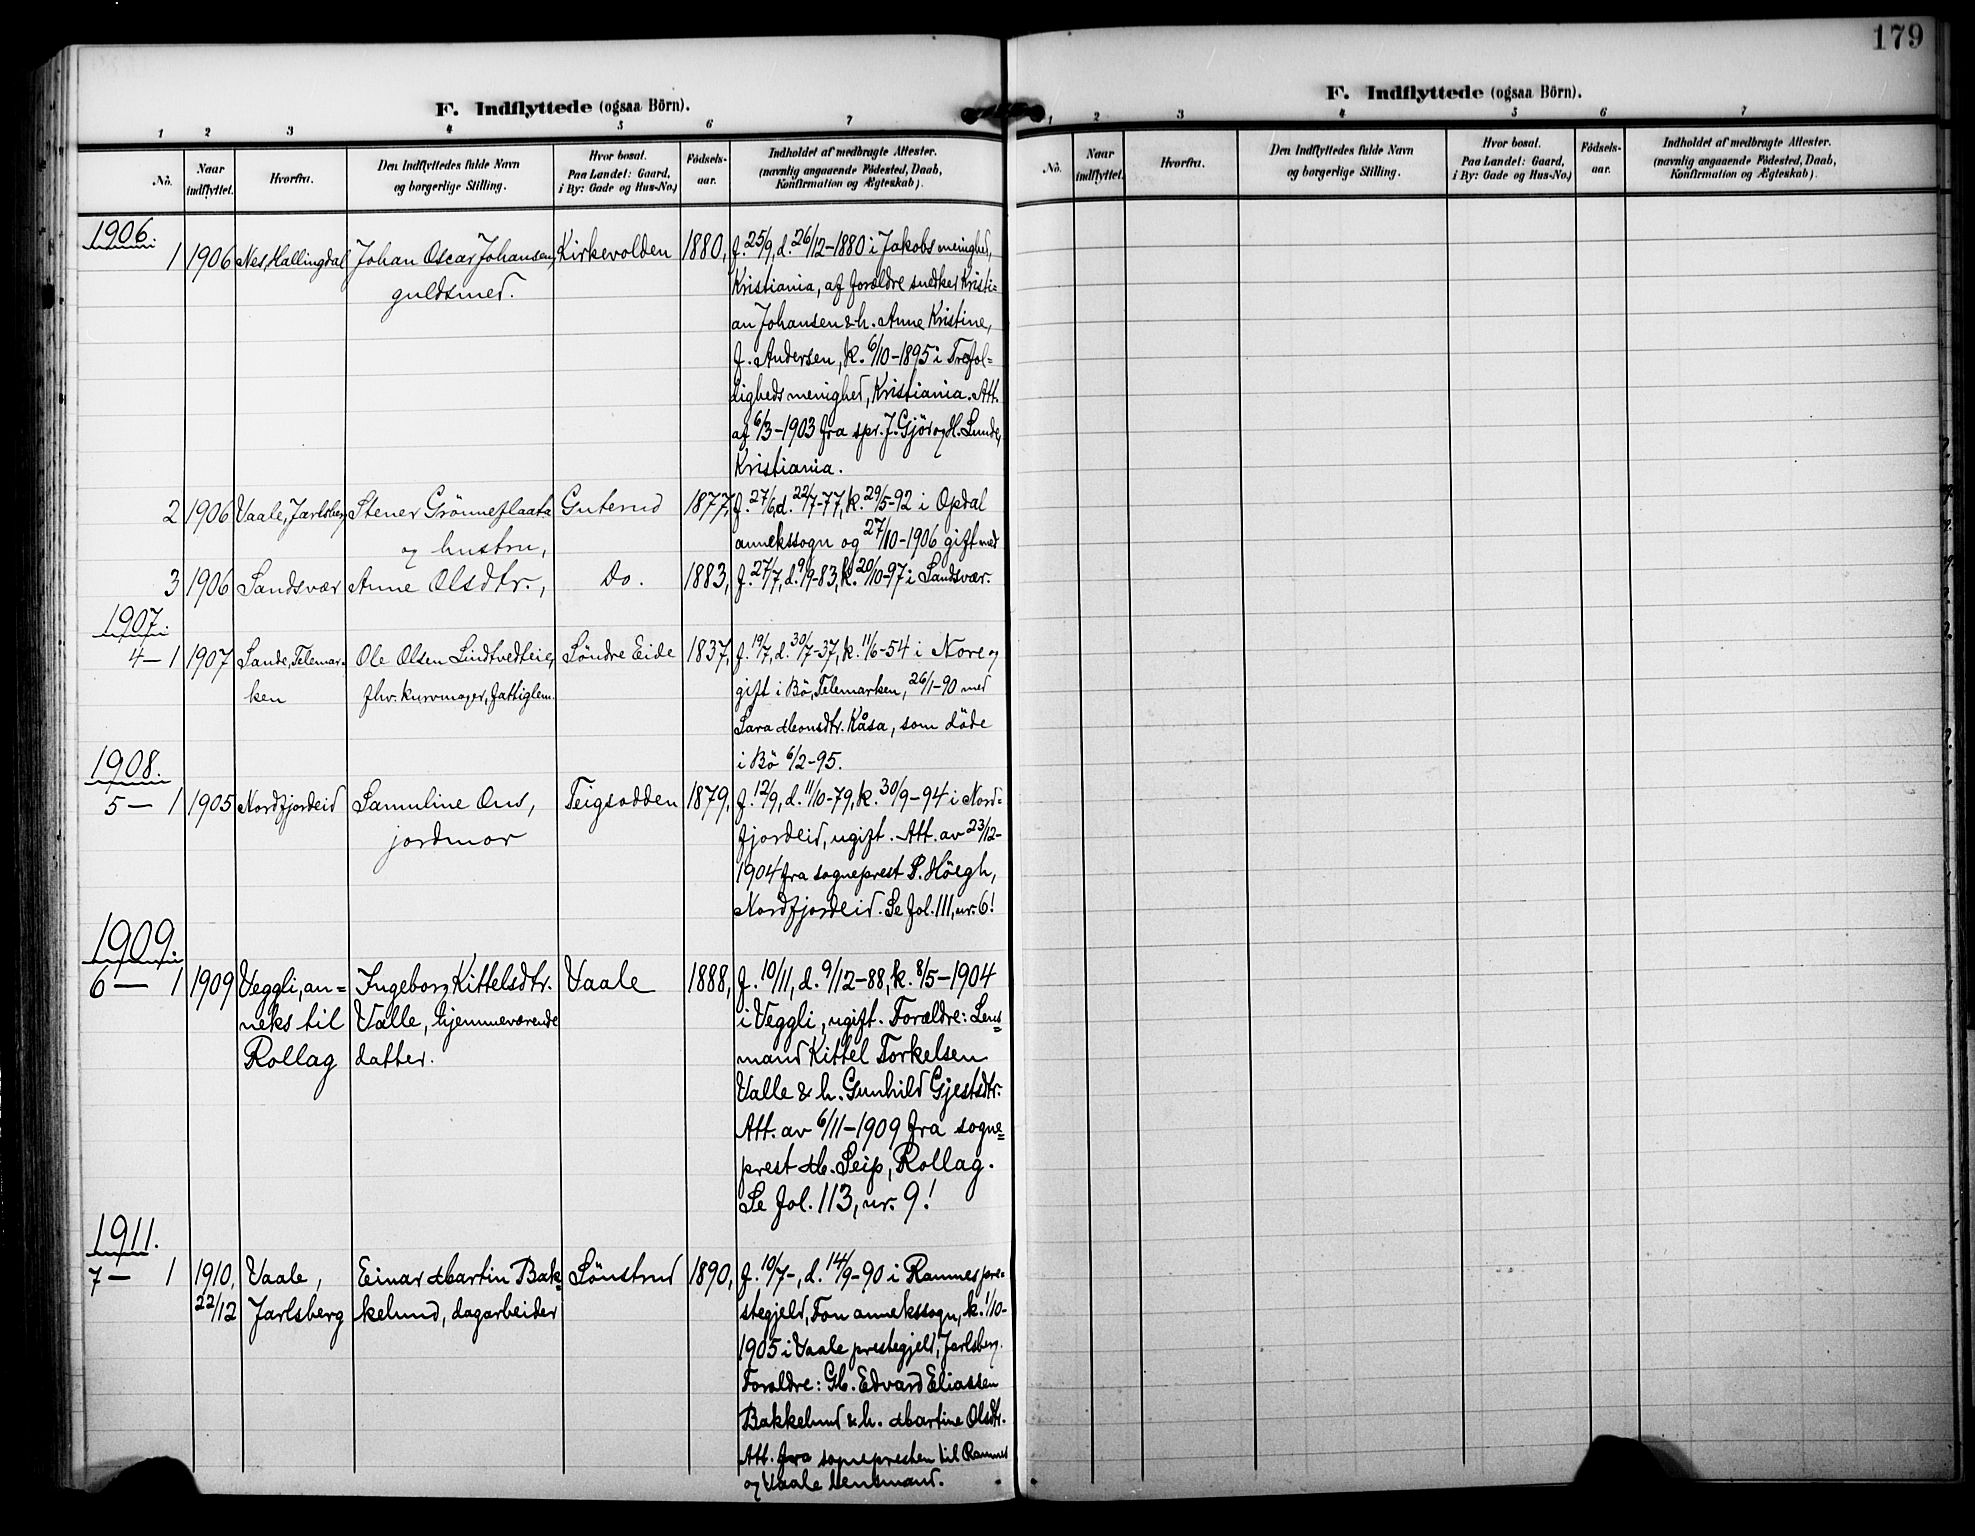 179
F. Indflyttede (ogsaa Börn).
1 2 3 4 5 6 7
No. Naar indflyttet. Hvorfra. Den Indflyttedes fulde Navn og borgerlige Stilling. Hvor bosat. Paa Landet: Gaard, i By: Gade og Hus-No.) Fødsels-aar. Indholdet af medbragte Attester. (navnlig angaaende Fødested, Daab, Konfirmation og Ægteskab).
1906.
1 1906 Nes, Hallingdal Johan Oscar Johansen, Kirkevolden 1880, f. 25/9, d. 26/12-1880 i Jakobs menighed,
guldsmed. Kristiania, af forældre snedker Kristi=
an Johansen & h. Anne Kristine,
f. Andersen, k. 6/10-1895 i Trefol=
digheds menighed, Kristiania. Att.
af 6/3-1903 fra spr. J. Gjör og H. Lunde,
Kristiania.
2 1906 Vaale, Jarlsberg Stener Grönneflaata Guterud 1877, f. 27/6, d. 22/7-77, k. 29/5-92 i Opdal
og hustru, annekssogn og 27/10-1906 gift med
3 1906 Sandsvær Anne Olsdtr., Do. 1883, f. 27/7, d. 9/9-83, k. 20/10-97 i Sandsvær.
1907.
4-1 1907 Sande, Telemar- Ole Olsen Lindtvedteie, Söndre Eide 1837, f. 19/7, d. 30/7-37, k. 11/6-54 i Nore og
ken fhv. kurvmager, fattiglem. gift i Bö, Telemarken, 26/1-90 med
Sara Monsdtr. Kåsa, som döde
i Bö 6/2-95.
1908.
5-1 1905 Nordfjordeid Samuline Ous, Teigsodden 1879, f. 12/9, d. 11/10-79, k. 30/9-94 i Nord=
jordmor fjordeid, ugift. Att. av 23/12-
1904 fra sogneprest S. Höegh,
Nordfjordeid. Se fol. 111, nr. 6!
1909.
6-1 1909 Veggli, an= Ingeborg Kittelsdtr. Vaale 1888, f. 10/11, d. 9/12-88, k. 8/5-1904
neks til Valle, hjemmeværende i Veggli, ugift. Forældre: Lens=
Rollag datter. mand Kittel Torkelsen
Valle & h. Gunhild Gjestsdtr.
Att. av 6/11-1909 fra sogne=
prest M. Seip, Rollag.
Se fol. 113, nr. 9!
1911.
7-1 1910, Vaale, Einar Martin Bak= Sönstrud 1890, f. 19/7-, d. 14/9-90 i Ramnes pre-
22/12 Jarlsberg kelund, dagarbeider stegjeld, Fon annekssogn, k. 1/10-
1905 i Vaale prestegjeld, Jarlsberg.
Forældre: Gb. Edvard Eliassen
Bakkelund & h. Martine Olsdtr.
Att. fra sognepresten til Ramnes
og Vaale lensmand.
F. Indflyttede (ogsaa Börn).
1 2 3 4 5 6 7
No. Naar indflyttet. Hvorfra. Den Indflyttedes fulde Navn og borgerlige Stilling. Hvor bosat. Paa Landet: Gaard, i By: Gade og Hus-No.) Fødsels-aar. Indholdet af medbragte Attester. (navnlig angaaende Fødested, Daab, Konfirmation og Ægteskab).